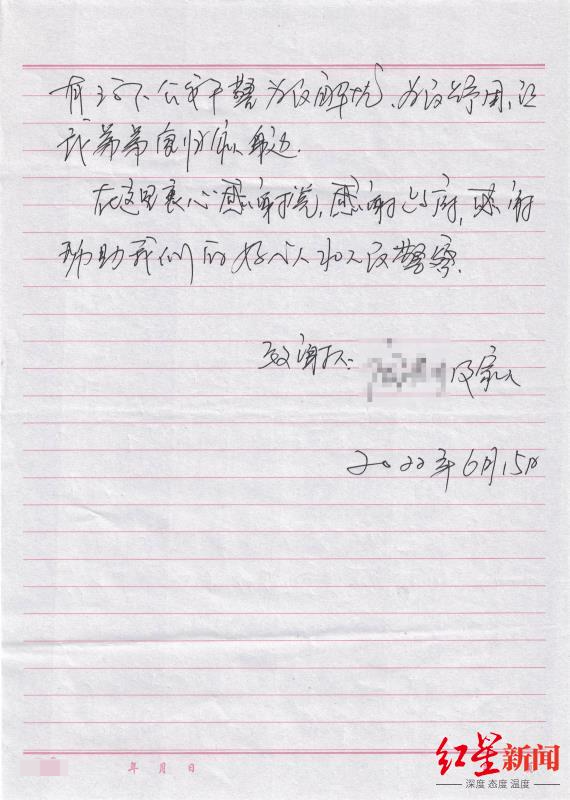 有这个公安干警为民解忧、为民纾困、让
我弟弟回归家人身边.
在这里衷心感谢党,感谢政府,感谢
帮助我们的好心人和人民警察.
致谢人: 及家人
2022年6月15日
年 月 日
红星新闻
深度 态度 温度